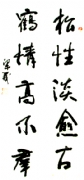 松性淡愈古
鶴情高不群